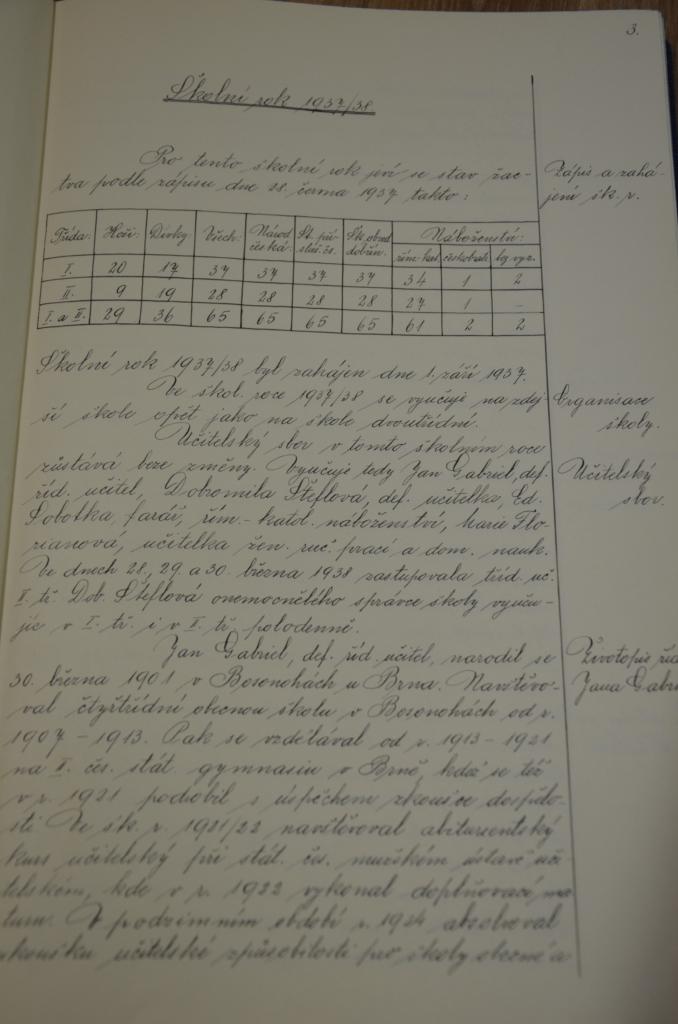 3.
Školní rok 1937/38
Pro tento školní rok jeví se stav žac-
tva podle zápisu dne 28. června 1937 takto:
Zápis a zahá-
jení šk. r.
Třída: Hoši: Dívky: Všech: Národ. česká: St. pří-sluš. čs. Šk. obvod dobřín. Náboženství: řím.-kat. českobrat. bez vyz.
I. 20 17 37 37 37 37 34 1 2
II. 9 19 28 28 28 28 27 1 –
I. a II. 29 36 65 65 65 65 61 2 2
Školní rok 1937/38 byl zahájen dne 1. září 1937.
Ve škol. roce 1937/38 se vyučuje na zdej-
ší škole opět jako na škole dvoutřídní.
Organisace
školy.
Učitelský sbor v tomto školním roce
zůstává beze změny. Vyučuje tedy Jan Gabriel, def.
říd. učitel, Dobromila Šteflová, def. učitelka, Ed.
Sobotka, farář, řím.-katol. náboženství, Marie Flo-
rianová, učitelka žen. ruč. prací a dom. nauk.
Učitelský
sbor.
Ve dnech 28., 29. a 30. března 1938 zastupovala tříd. uč.
II. tř. Dob. Šteflová onemocnělého správce školy vyuču-
jíc v I. tř. i v II. tř. polodenně.
Jan Gabriel, def. říd. učitel, narodil se
30. března 1901 v Bosonohách u Brna. Navštěvo-
val čtyřtřídní obecnou školu v Bosonohách od r.
1907 – 1913. Pak se vzdělával od r. 1913 – 1921
na II. čes. stát. gymnasiu v Brně, kdež se též
v r. 1921 podrobil s úspěchem zkoušce dospělo-
sti. Ve šk. r. 1921/22 navštěvoval abiturientský
kurs učitelský při stát. čes. mužském ústavě uči-
telském, kde v r. 1922 vykonal doplňovací ma-
turu. V podzimním období r. 1924 absolvoval
zkoušku učitelské způsobilosti pro školy obecné a
Životopis říd.
Jana Gabri